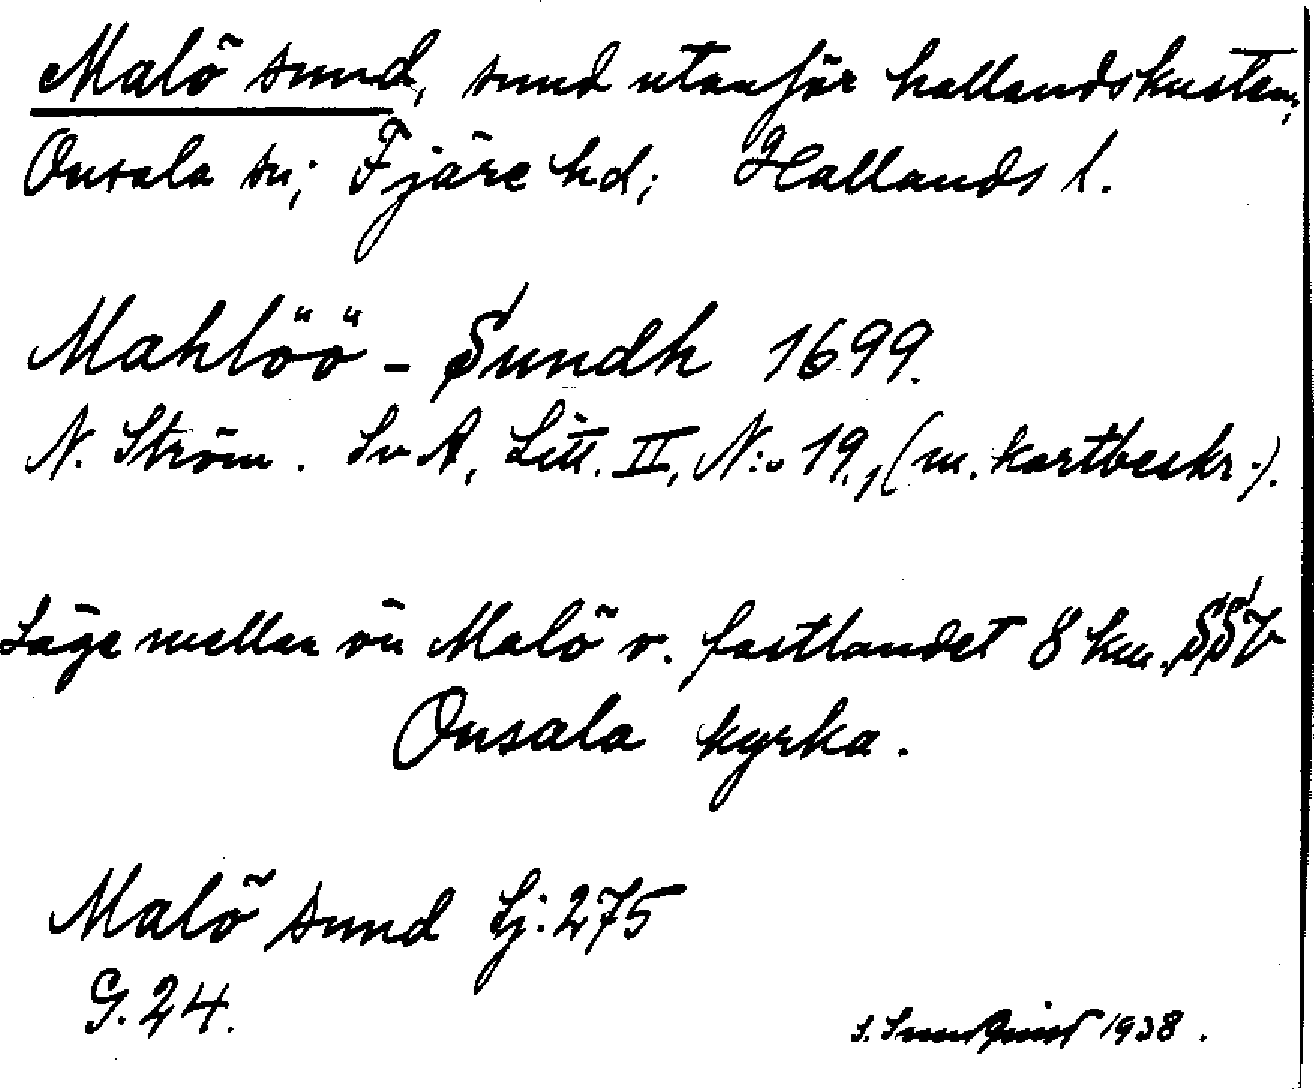 Malö sund, sund utanför hallandskusten,
Onsala sn; Fjäre hd; Hallands l.
Mahlöö - Sundh 1699.
N. Ström. Sv A, Litt. II, N:o 19, (m. kartbeskr.).
Läge mellan ön Malö o. fastlandet 8 km. SSV
Onsala kyrka.
Malö sund Sj: 275
G. 24.
S. Sundquist 1938.